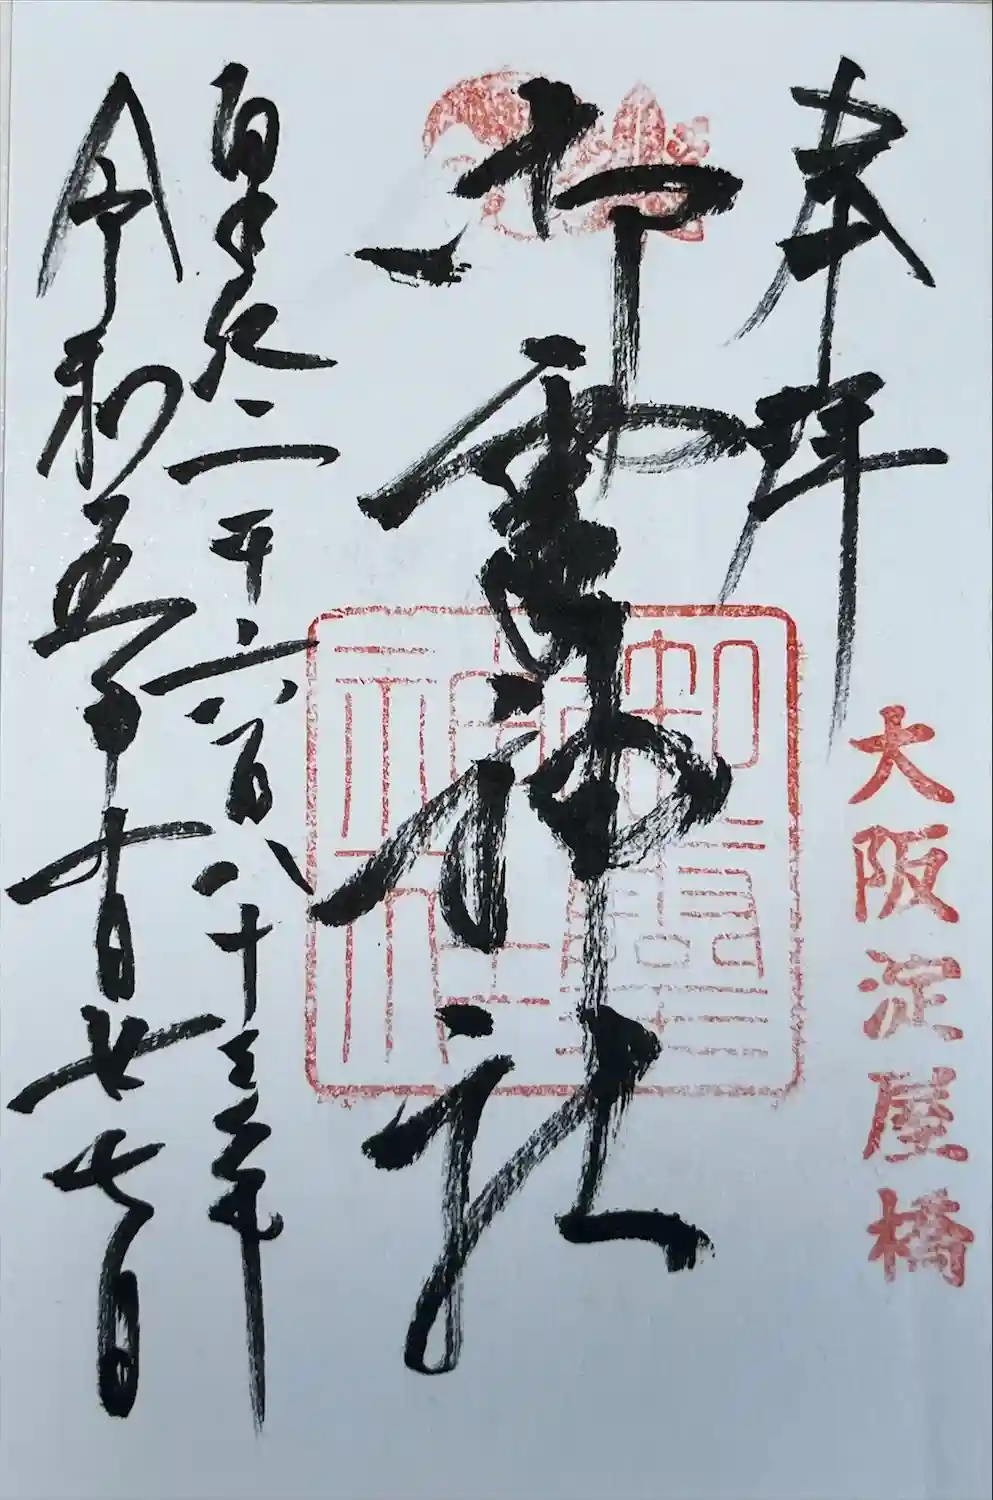 奉拝
大阪淀屋橋
御霊神社
御靈神社
皇紀二千六百八十三年
令和五年十月廿七日